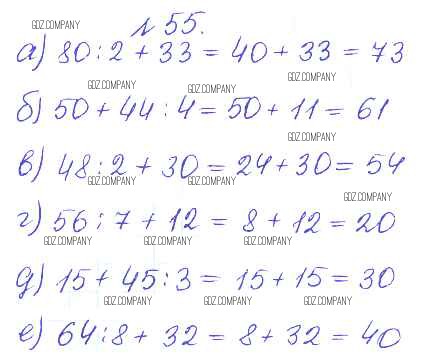 GDZ.COMPANY
№ 55.
а) 80 : 2 + 33 = 40 + 33 = 73
GDZ.COMPANY GDZ.COMPANY GDZ.COMPANY
б) 50 + 44 : 4 = 50 + 11 = 61
GDZ.COMPANY
в) 48 : 2 + 30 = 24 + 30 = 54
GDZ.COMPANY GDZ.COMPANY
GDZ.COMPANY
г) 56 : 7 + 12 = 8 + 12 = 20
GDZ.COMPANY GDZ.COMPANY GDZ.COMPANY
д) 15 + 45 : 3 = 15 + 15 = 30
GDZ.COMPANY GDZ.COMPANY GDZ.COMPANY
е) 64 : 8 + 32 = 8 + 32 = 40